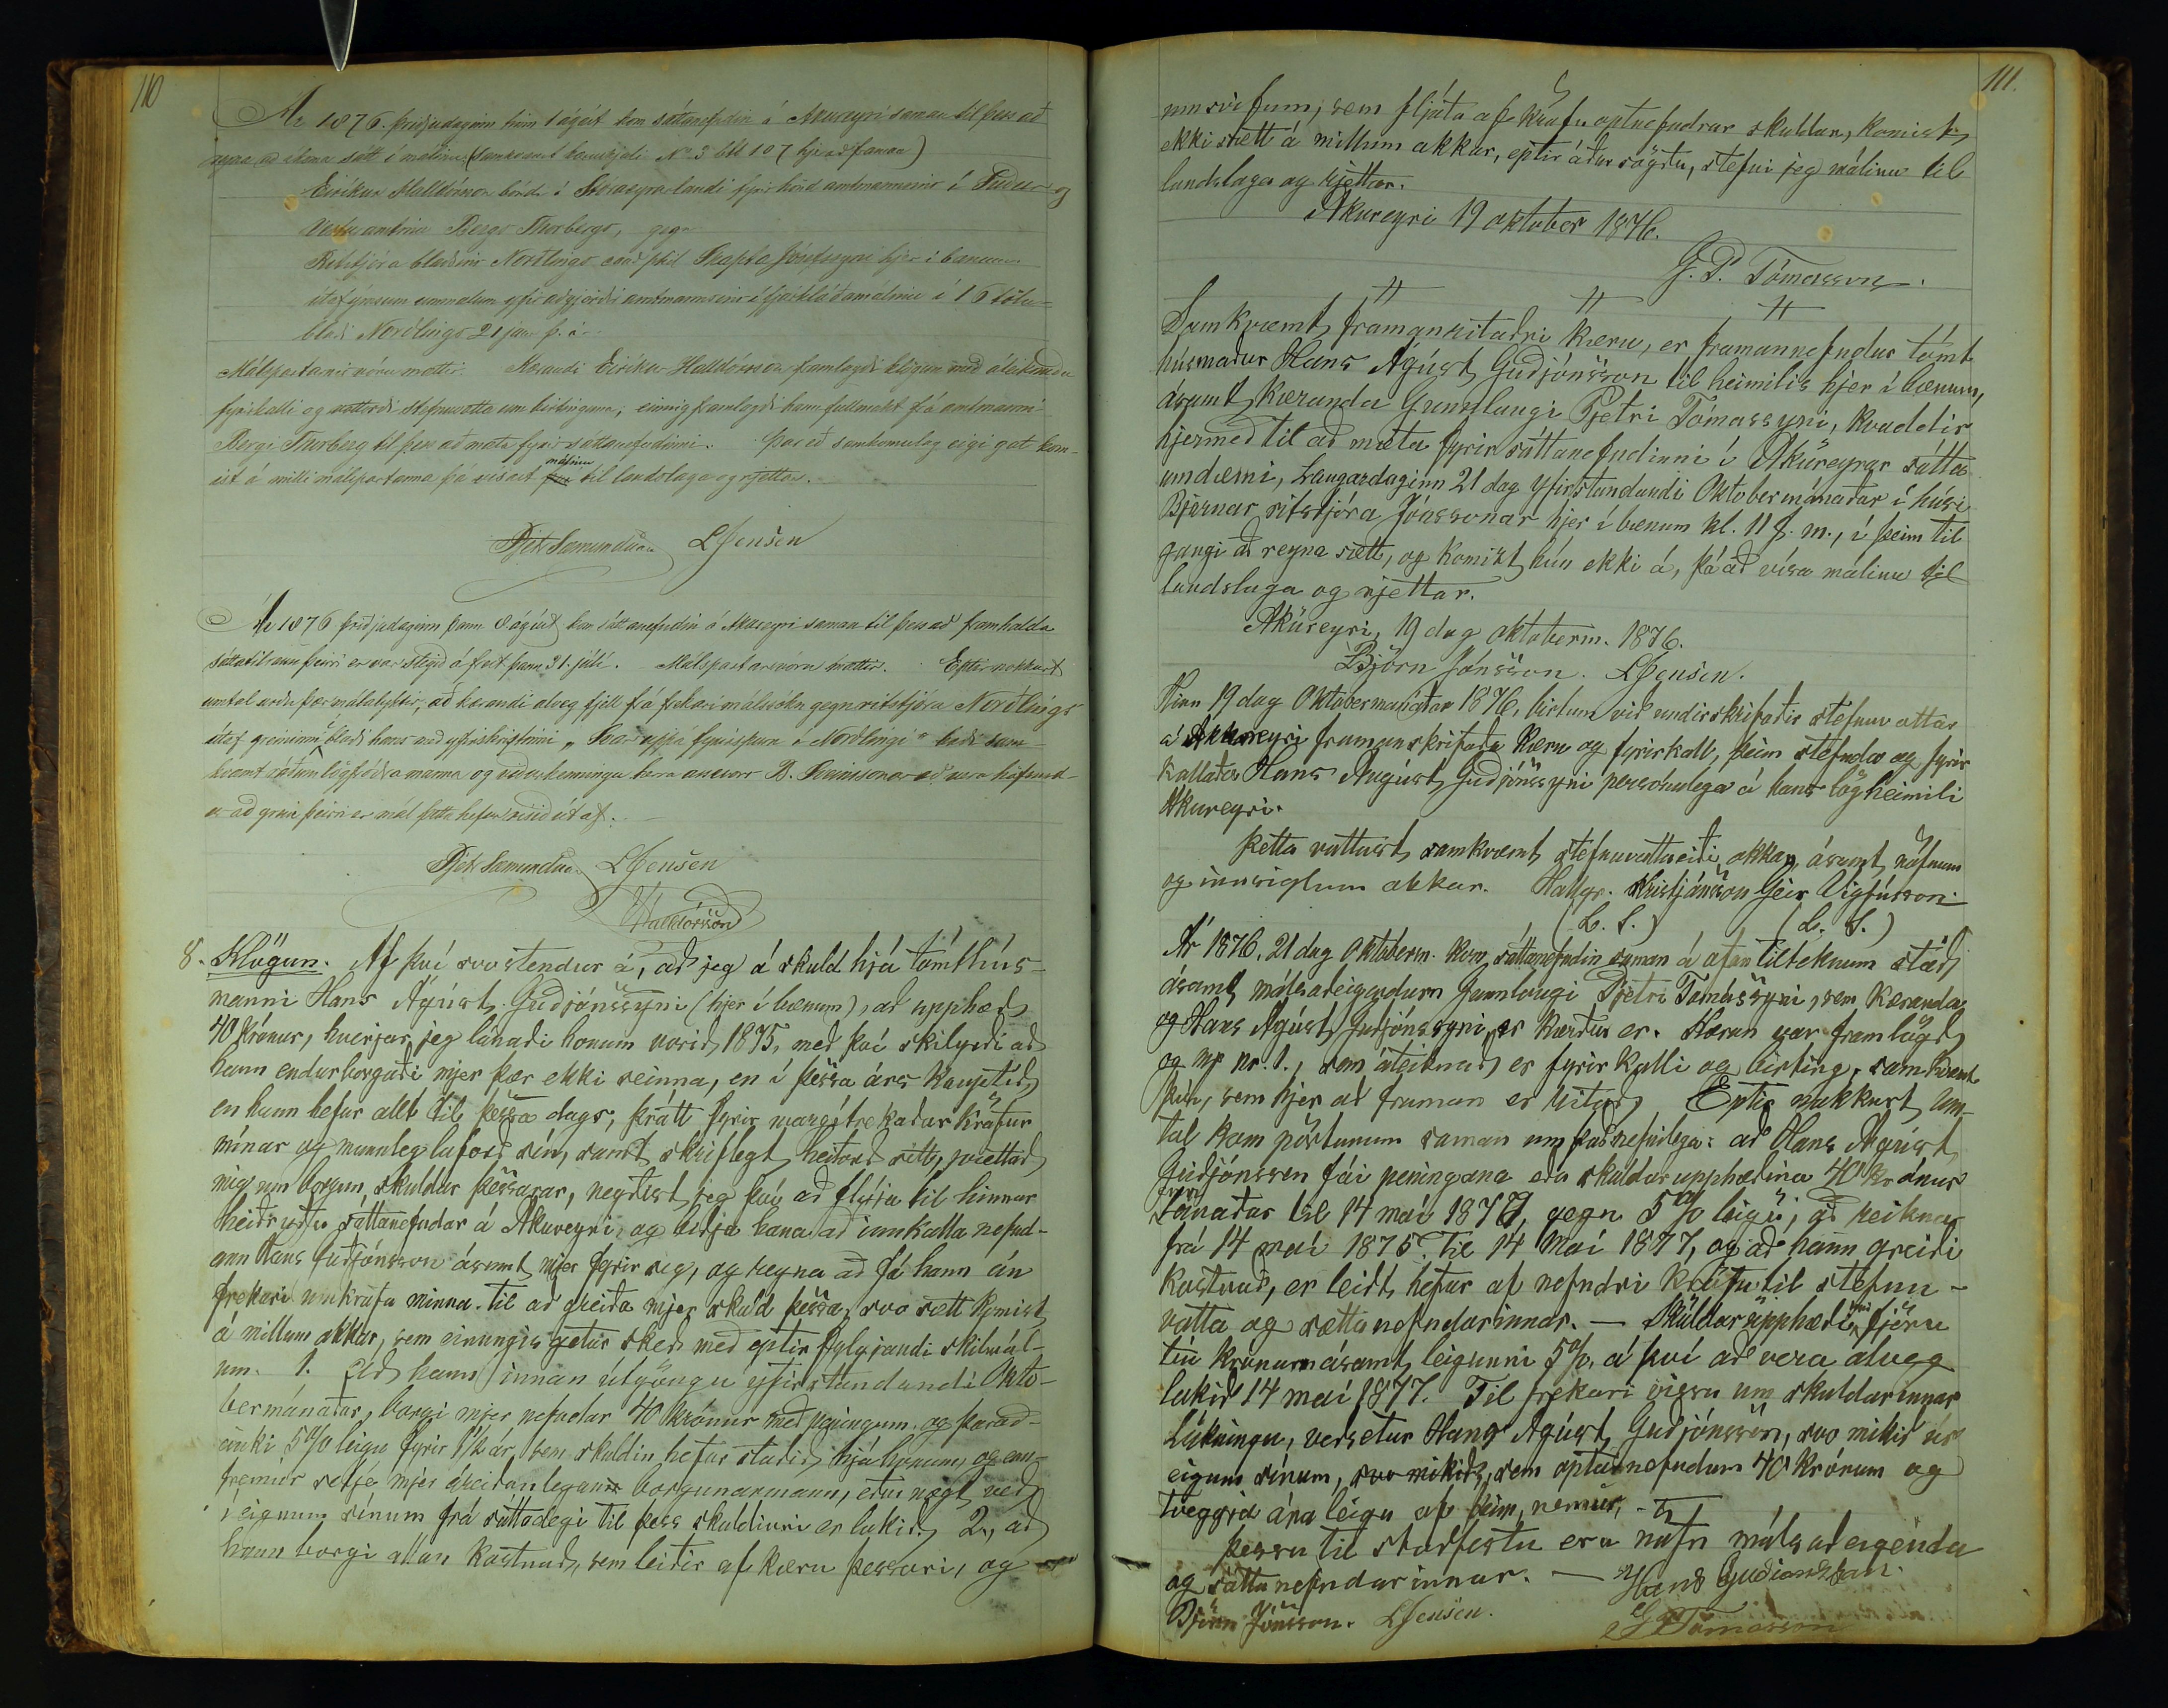 110
Ár 1876. þriðjudaginn hinn 1 ágúst kom sáttanefndin á Akureyri saman til þess að
reyna að koma sátt í málinu (samkvæmt kæruskjali No 3 bls 107 hjer að framan)
Eiríkur Halldórsson bóndi í fyrir hönd amtmannsins í Suður og
Vesturamtinu Bergs Thorbergs, gegn
Ritstjóra blaðsins Norðlings cand phil Skapta Jósepssyni hjer í bænum
útaf ýmsum ummælum yfir aðgjörðir amtmannsins í fjárkláðamálinu í 16 tölu-
blaði Norðlings 21 jan þ. á.
Málspartarnir vóru mættir. Kærandi Eiríkur Halldórsson framlagði klögun með áteiknuðu
fyrirkalli og vottorði stefnuvotta um birtinguna; einnig framlagði hann fullmakt frá amtmanni
Bergi Thorberg til þess að mæta fyrir sáttanefndinni. Þar eð samkomulag eigi gat kom-
ist á milli málspartanna þá vísast málinu til landslaga og rjettar.
Pjetr Sæmundsen LJensen
Ár 1876 þriðjudaginn þann 8 ágúst kom sáttanefndin á Akureyri saman til þess að framhalda
sáttatilraun þeirri er var stigið á frest þann 31. júlí. Málspartar vóru mættir. Eptir nokkurt
umtal urðu þær málalyktir, að kærandi alveg fjell frá frekari málssókn gegn ritstjóra Norðlings
útaf greininni í blaði hans með yfirskriptinni „Svar uppá fyrirspurn í Norðlingi" bæði sam-
kvæmt ráðum lögfróðra manna og viðurkenningu herra assessors B. Sveinssonar að vera höfund-
ur að grein þeirri er mál þetta hefur risið út af.
Pjetr Sæmundsen LJensen
Halldórsson
8. Klögun. Af því svo stendur á, að jeg á skuld hjá tómthús-
manni Hans Ágúst Guðjónssyni (hjer í bænum), að upphæð
40 Krónur, hverjar jeg lánaði honum vorið 1875, með því skilyrði að
hann endurborgaði mjer þær ekki seinna, en í þessa árs kauptíð,
en hann hefur allt til þessa dags, þrátt fyrir margítrekaðar kröfur
mínar og munnleg loforð sín, samt skriflegt heitorð sitt, prettað
mig um borgun skuldar þessarar, neyðist jeg því að flýja til hinnar
heiðruðu sáttanefndar á Akureyri og biðja hana að innkalla nefnd-
ann Hans Guðjónsson ásamt mjer fyrir sig, og reyna að fá hann án
frekari umkrafa minna til að greiða mjer skuld þessa, svo sátt komist
á millum okkar, sem einungis getur skeð með eptir fylgjandi skilmál-
um. 1. Að hann innan útgöngu yfirstandandi Októ-
bermánaðar, borgi mjer nefndar 40 krónur með peningum og þarað-
auki 5% leigu fyrir 1½ ár, sem skuldin hefur staðið hjá honum, og enn
fremur setji mjer áreiðanlegann borgunarmann, eður nægt veð
í eignum sínum frá sáttadegi til þess skuldinni er lukið, 2, að
hann borgi allan kostnað, sem leiðir af kæru þessari, og
111.
umsvifum, sem fljóta af kröfu optnefndrar skuldar, komist
ekki sætt á millum okkar, eptir áðursögðu, stefni jeg málinu til
landslaga og rjettar.
Akureyri 19 oktober 1876.
G. P. Tómasson.
Samkvæmt framanritaðri kæru, er framannefndur tómt
húsmaður Hans Ágúst Guðjónsson til heimilis hjer í bænum,
ásamt kæranda Gunnlaugi Pjetri Tómassyni, kvaddir
hjermeð til að mæta fyrir sáttanefndinni í Akureyrar sátta
umdæmi, Laugardaginn 21 dag yfirstandandi Oktobermánaðar í húsi
Björnar ritstjóra Jónssonar hjer í bænum kl. 11 f. m., í þeim til
gangi að reyna sætt, og komist hún ekki á, þá að vísa málinu til
landslaga og rjettar.
Akureyri, 19 dag oktoberm. 1876.
Björn Jónsson. LJensen.
Hinn 19 dag Oktobermánaðar 1876, birtum við undirskrifaðir stefnuvottar
á Akureyri framanskrifaða kæru og fyrirkall, þeim stefnda og fyrir
kallaða Hans Ágúst Guðjónssyni persónulega á hans lögheimili
Akureyri.
Þetta vottast samkvæmt stefnuvottaeiði okkar ásamt nöfnum
og innsiglum okkar. Hallgr. Kristjánsson Geir Vigfússon
(L. S.) (L. S.)
Ár 1876, 21 dag Októberm. kom sáttanefndin saman á ofan tilteknum stað,
ásamt málsaðeigendum Gunnlaugi Pjetri Tómássyni, sem kæranda
og Hans Ágúst Guðjónssyni, er kærður er. Kæran var framlögð
og mp nr. 1., sem áteiknað er fyrirkalli og birting, samkvæmt
því, sem hjer að framan er ritað. Eptir nokkurt um-
tal kom pörtunum saman um það nefnilega: að Hans Ágúst
Guðjónssen fái peningana eða skuldarupphæðina 40 krónur
lánaðar til 14 maí 1877, gegn 5% leigu, að reikna
frá 14 maí 1875 til 14 Maí 1877, og að hann greiði
kostnað, er leidt hefur af nefndri kröfu til stefnu-
votta og sættanefndarinnar. — Skuldarupphæðinni fjöru
tíu krónum ásamt leigunni 5%, á því að vera alveg
lukið 14 maí 1877. Til frekari vissu um skuldarinnar
lúkningu, veðsetur Hans Ágúst Guðjónsson, svo mikið úr
eigum sínum, svo mikið, sem optarnefndum 40 krónum og
tveggja ára leigu af þeim, nemur, –
Þessu til staðfestu eru nöfn málsaðeigenda
og sáttanefndarinnar. — Hans Guðjónsson.
Björn Jónsson. LJensen. G P Tómasson